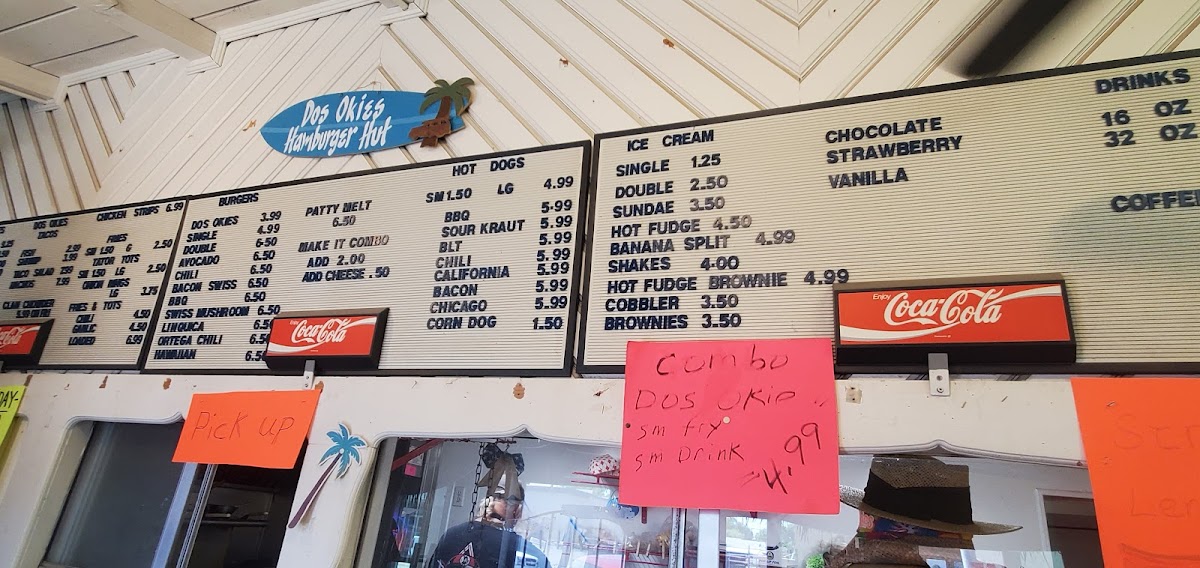 Dos Okies
Hamburger Hut
DOS OKIES
TACOS
FISH 2.99
TACO SALAD 7.99
NACHOS 7.99
CLAM CHOWDER
CHICKEN STRIPS 6.99
FRIES
SM 1.50 G 2.50
TATOR TOTS
SM 1.50 LG 2.50
ONION RINGS
LG 3.75
FRIES & TOTS
CHILI 4.50
GARLIC 4.50
LOADED 6.99
BURGERS
DOS OKIES 3.99
SINGLE 4.99
DOUBLE 6.50
AVOCADO 6.50
CHILI 6.50
BACON SWISS 6.50
BBQ 6.50
SWISS MUSHROOM 6.50
LINGUICA 6.5
ORTEGA CHILI 6.5
HAWAIIAN 6.5
PATTY MELT
6.50
MAKE IT COMBO
ADD 2.00
ADD CHEESE .50
HOT DOGS
SM 1.50 LG 4.99
BBQ 5.99
SOUR KRAUT 5.99
BLT 5.99
CHILI 5.99
CALIFORNIA 5.99
BACON 5.99
CHICAGO 5.99
CORN DOG 1.50
ICE CREAM
SINGLE 1.25
DOUBLE 2.50
SUNDAE 3.50
HOT FUDGE 4.50
BANANA SPLIT 4.99
SHAKES 4.00
HOT FUDGE BROWNIE 4.99
COBBLER 3.50
BROWNIES 3.50
CHOCOLATE
STRAWBERRY
VANILLA
DRINKS
16 OZ
32 OZ
COFFEE
Coca-Cola
Enjoy
Coca-Cola
DAY-
Pick up
Combo
Dos Okie
sm fry
sm Drink
4.99